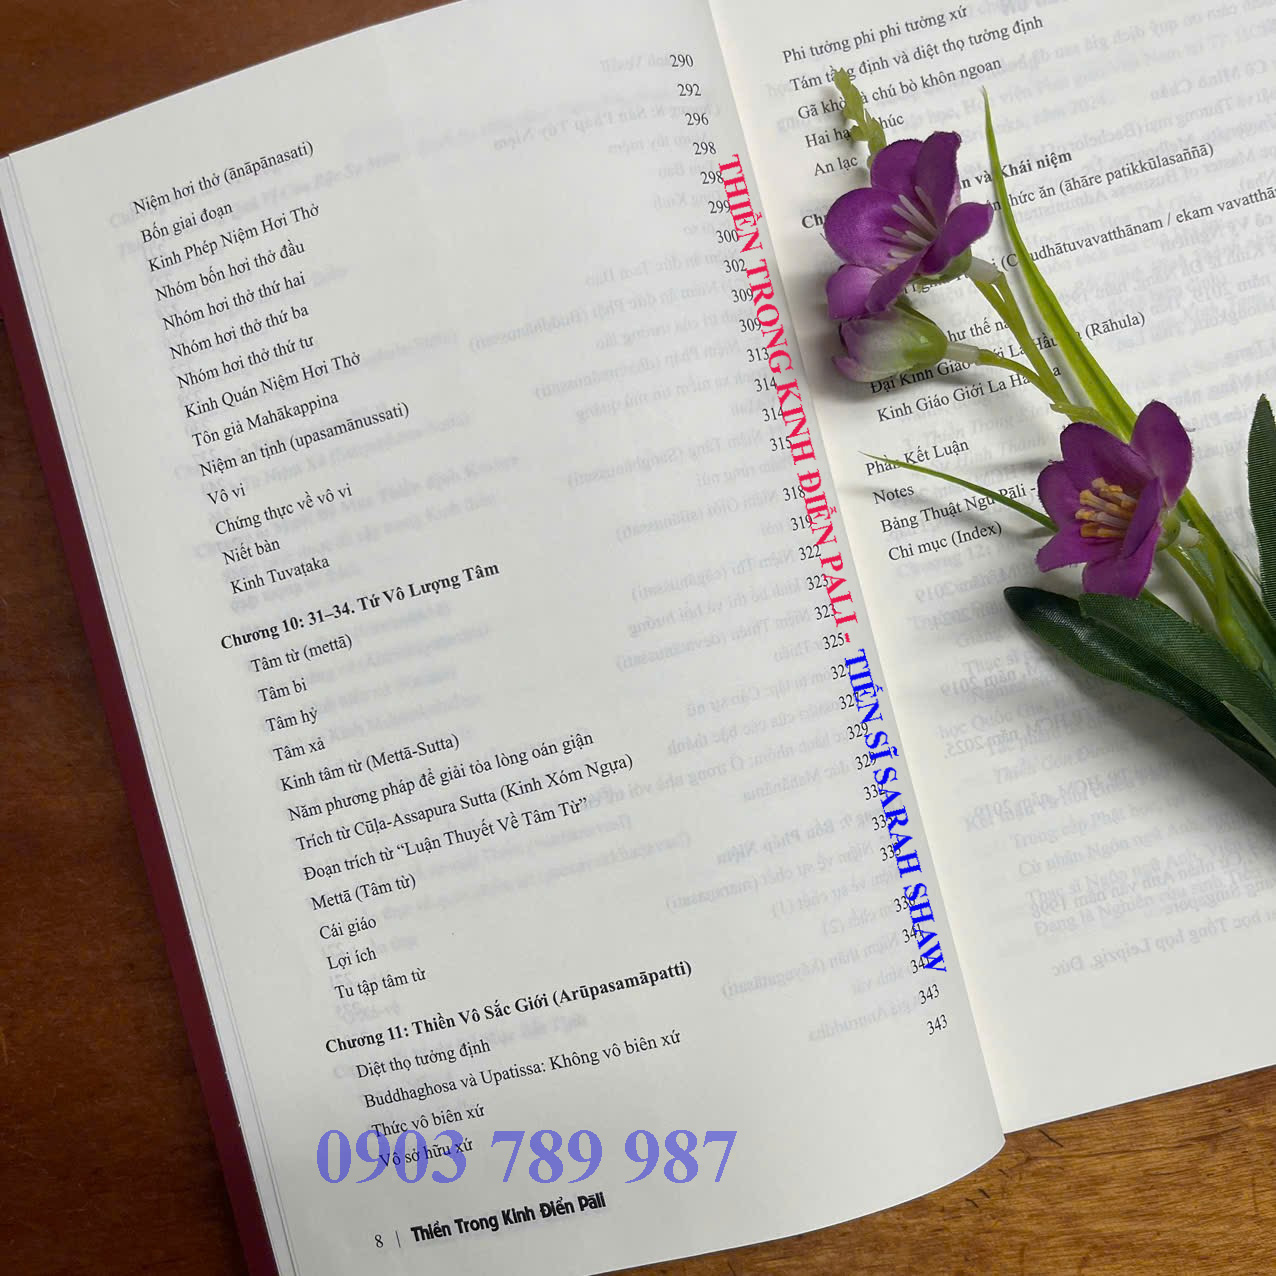 Niệm hơi thở (ānāpānasati) 290
Bốn giai đoạn 292
Kinh Phép Niệm Hơi Thở 296
Nhóm bốn hơi thở đầu 298
Nhóm hơi thở thứ hai 298
Nhóm hơi thở thứ ba 299
Nhóm hơi thở thứ tư 300
Kinh Quán Niệm Hơi Thở 302
Tôn giả Mahākappina 309
Niệm an tịnh (upasamānussati) 309
Vô vi 313
Chứng thực về vô vi 314
Niết bàn 314
Kinh Tuvaṭaka 315
Chương 10: 31–34. Tứ Vô Lượng Tâm 318
Tâm từ (mettā) 319
Tâm bi 322
Tâm hỷ 323
Tâm xả 323
Kinh tâm từ (Mettā-Sutta) 325
Năm phương pháp để giải tỏa lòng oán giận 327
Trích từ Cūḷa-Assapura Sutta (Kinh Xóm Ngựa) 327
Đoạn trích từ “Luận Thuyết Về Tâm Từ” 329
Mettā (Tâm từ) 329
Cái giáo
Lợi ích
Tu tập tâm từ
Chương 11: Thiền Vô Sắc Giới (Arūpasamāpatti)
Diệt thọ tưởng định
Buddhaghosa và Upatissa: Không vô biên xứ
Thức vô biên xứ 343
Vô sở hữu xứ 343
8 | Thiền Trong Kinh Điển Pāli
0903 789 987
THIỀN TRONG KINH ĐIỂN PALI - TIẾN SĨ SARAH SHAW
Phi tưởng phi phi tưởng xứ
Tám tầng định và diệt thọ tưởng định
Gã khờ và chú bò khôn ngoan
Hai hạ phúc
An lạc
và Khái niệm
thức ăn (āhāre patikkūlasaññā)
dhātuvavatthānam / ekam vavatthā
như thế nà
Đại Kinh Giáo Giới La Hầu (Rāhula)
Kinh Giáo Giới La Hầu La
Phần Kết Luận
Notes
Bảng Thuật Ngữ Pāli -
Chỉ mục (Index)